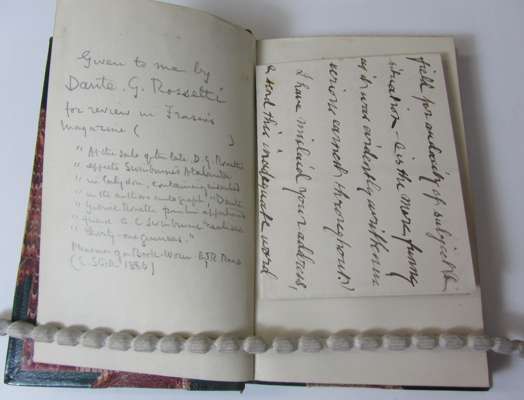 Given to me by
Dante. G. Rossetti
for review in Fraser's
magazine ( )
"At the sale of the late D. G. Rossetti's
" effects Swinburne's Atalanta
" in Calydon, containing
" in the author's autograph, "Dante
" Gabriel Rossetti from his affectionate
" friend A C Swinburne" realised
" thirty-one guineas."
Memoirs of a Book-Worm
field for audacity of subject &
situation - & is the more funny
as it was evidently written in
serious earnest throughout.)
I have mislaid your address,
& send this inadequate word